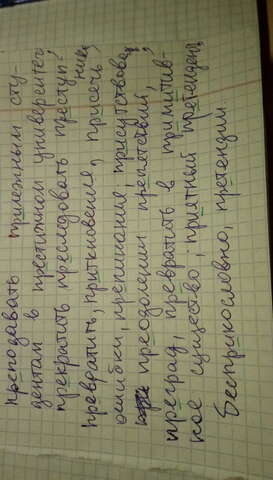 преподавать прилежным сту-
дентам в престижном университете
прекратить преследовать преступника,
превратить, приткновения, присечь,
ошибки, пререкание присутствовать,
преодолении препятствий,
преград, превратить в примитив-
ное существо, приятный претендент,
Беспрекословно, претензии.